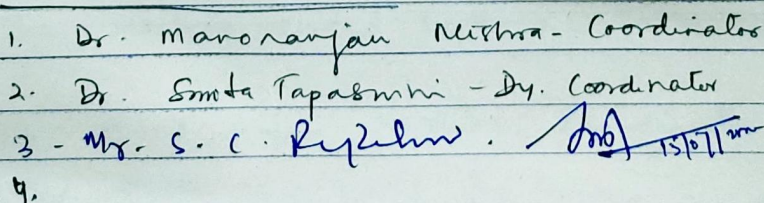 1. Dr. Manoranjan Mishra - Coordinator
2. Dr. Smita Tapaswini - Dy. Coordinator
3 - Mr. S. C.
4.